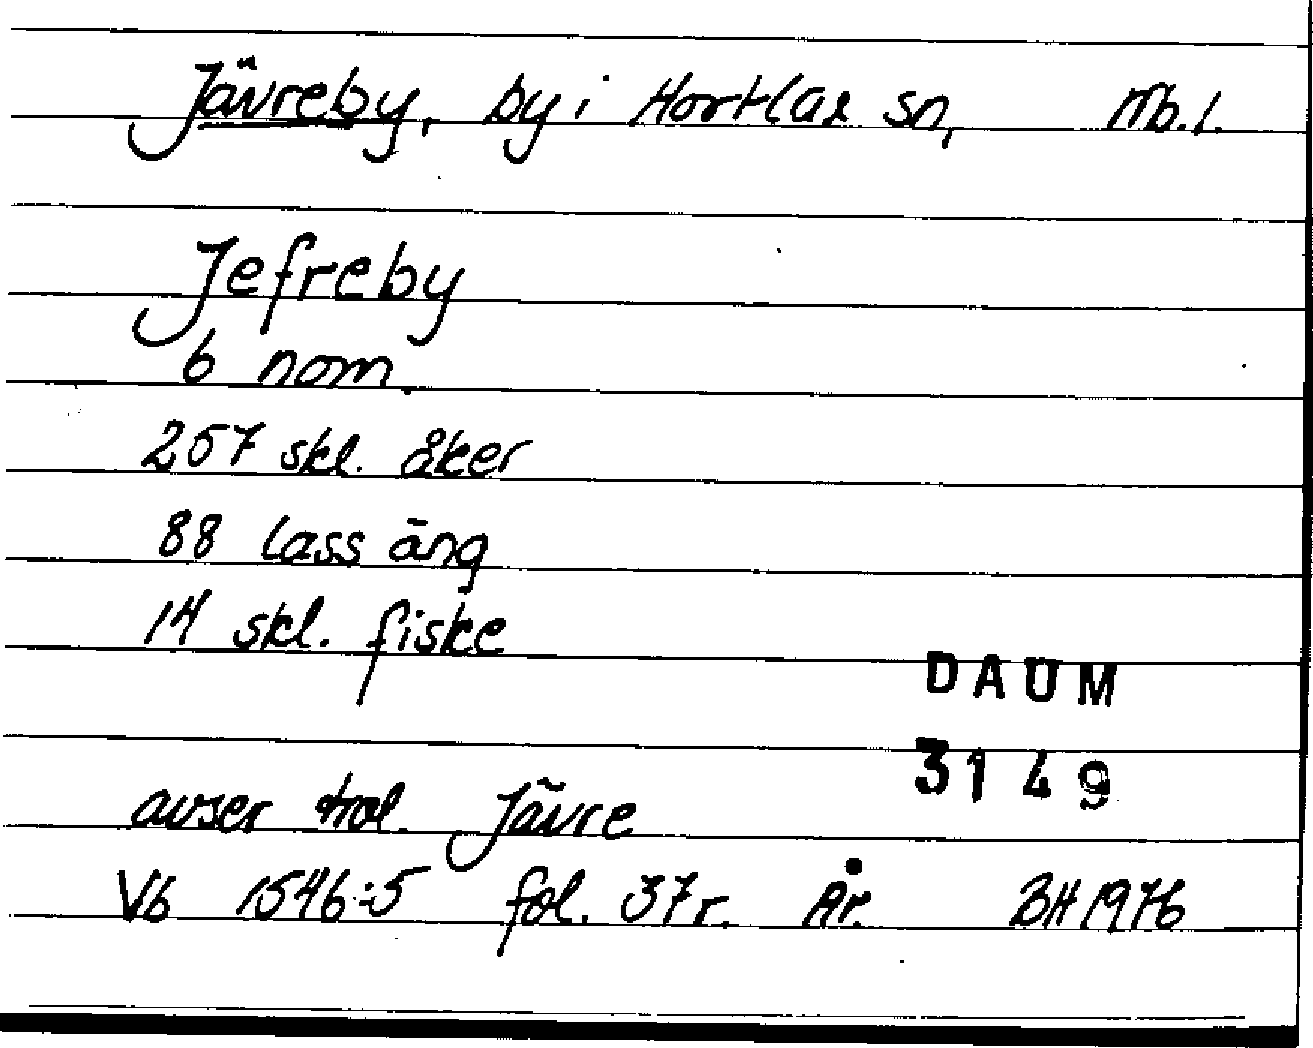 Jävreby, by i Hortlax sn, Nb.l.
Jefreby
6 nom.
257 skl. åker
88 lass äng
14 skl. fiske
DAUM
3149
avser trol. Jävre
Vb 1546:5 fol. 37r. År. BH 1976